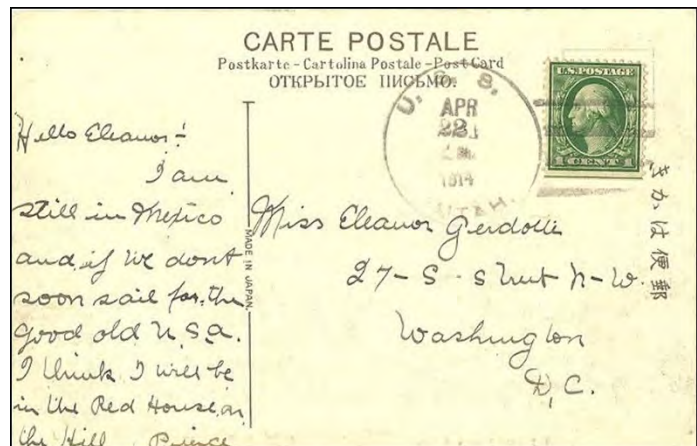 CARTE POSTALE
Postkarte - Cartolina Postale - Post Card
ОТКРЫТОЕ ПИСЬМО.
U.S.S.
APR
22
1914
UTAH.
U.S. POSTAGE
1 CENT 1
きかは便郵
MADE IN JAPAN.
Hello Eleanor!-
I am
still in Mexico
and if we dont
soon sail for the
good old U.S.A.
I think I will be
in the Red House on
the Hill. Prince
Miss Eleanor
27 - S - Street N-W.
Washington
D,C.